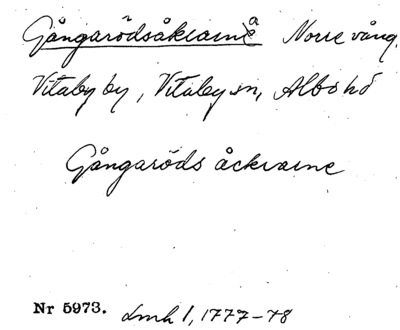 Gångarödsåkrarna Norre vång,
Vitaby by, Vitaby sn, Albo hd
Gångaröds åckrarne
Nr 5973. Lmh 1, 1777-78